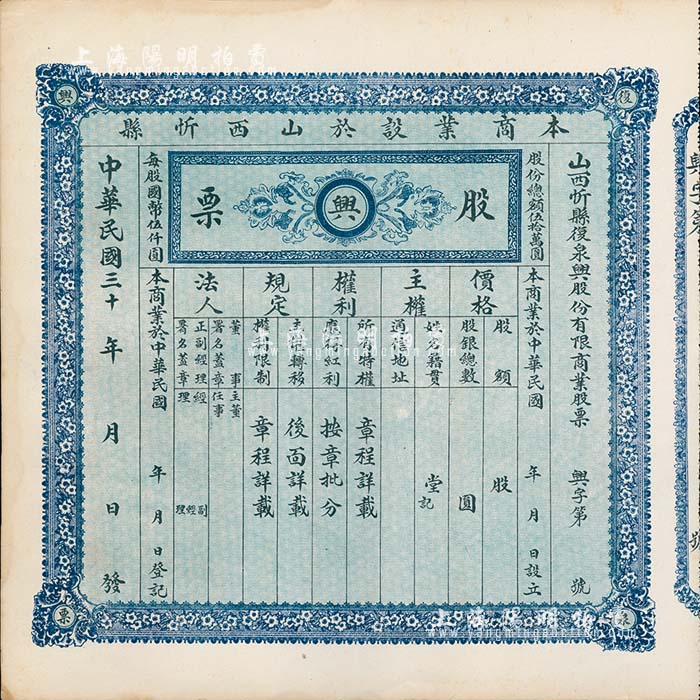 上海陽明拍賣
www.yangmingauction.com
復
興
泉
票
本商業設於山西忻縣
山西忻縣復泉興股份有限商業股票 興字第 號
股份總額伍拾萬圓 本商業於中華民國 年 月 日設立
股 興 票
價格
股額 股
股銀總數 圓
主權
姓名籍貫 堂記
通信地址
權利
所有特權 章程詳載
應得紅利 按章批分
規定
主權轉移 後面詳載
權利限制 章程詳載
法人
董事主董
署名蓋章任事
正副經理經 副
署名蓋章理 經理
每股國幣伍仟圓 本商業於中華民國 年 月 日登記
中華民國三十 年 月 日發
上海陽明拍賣
www.yangmingauction.com
號